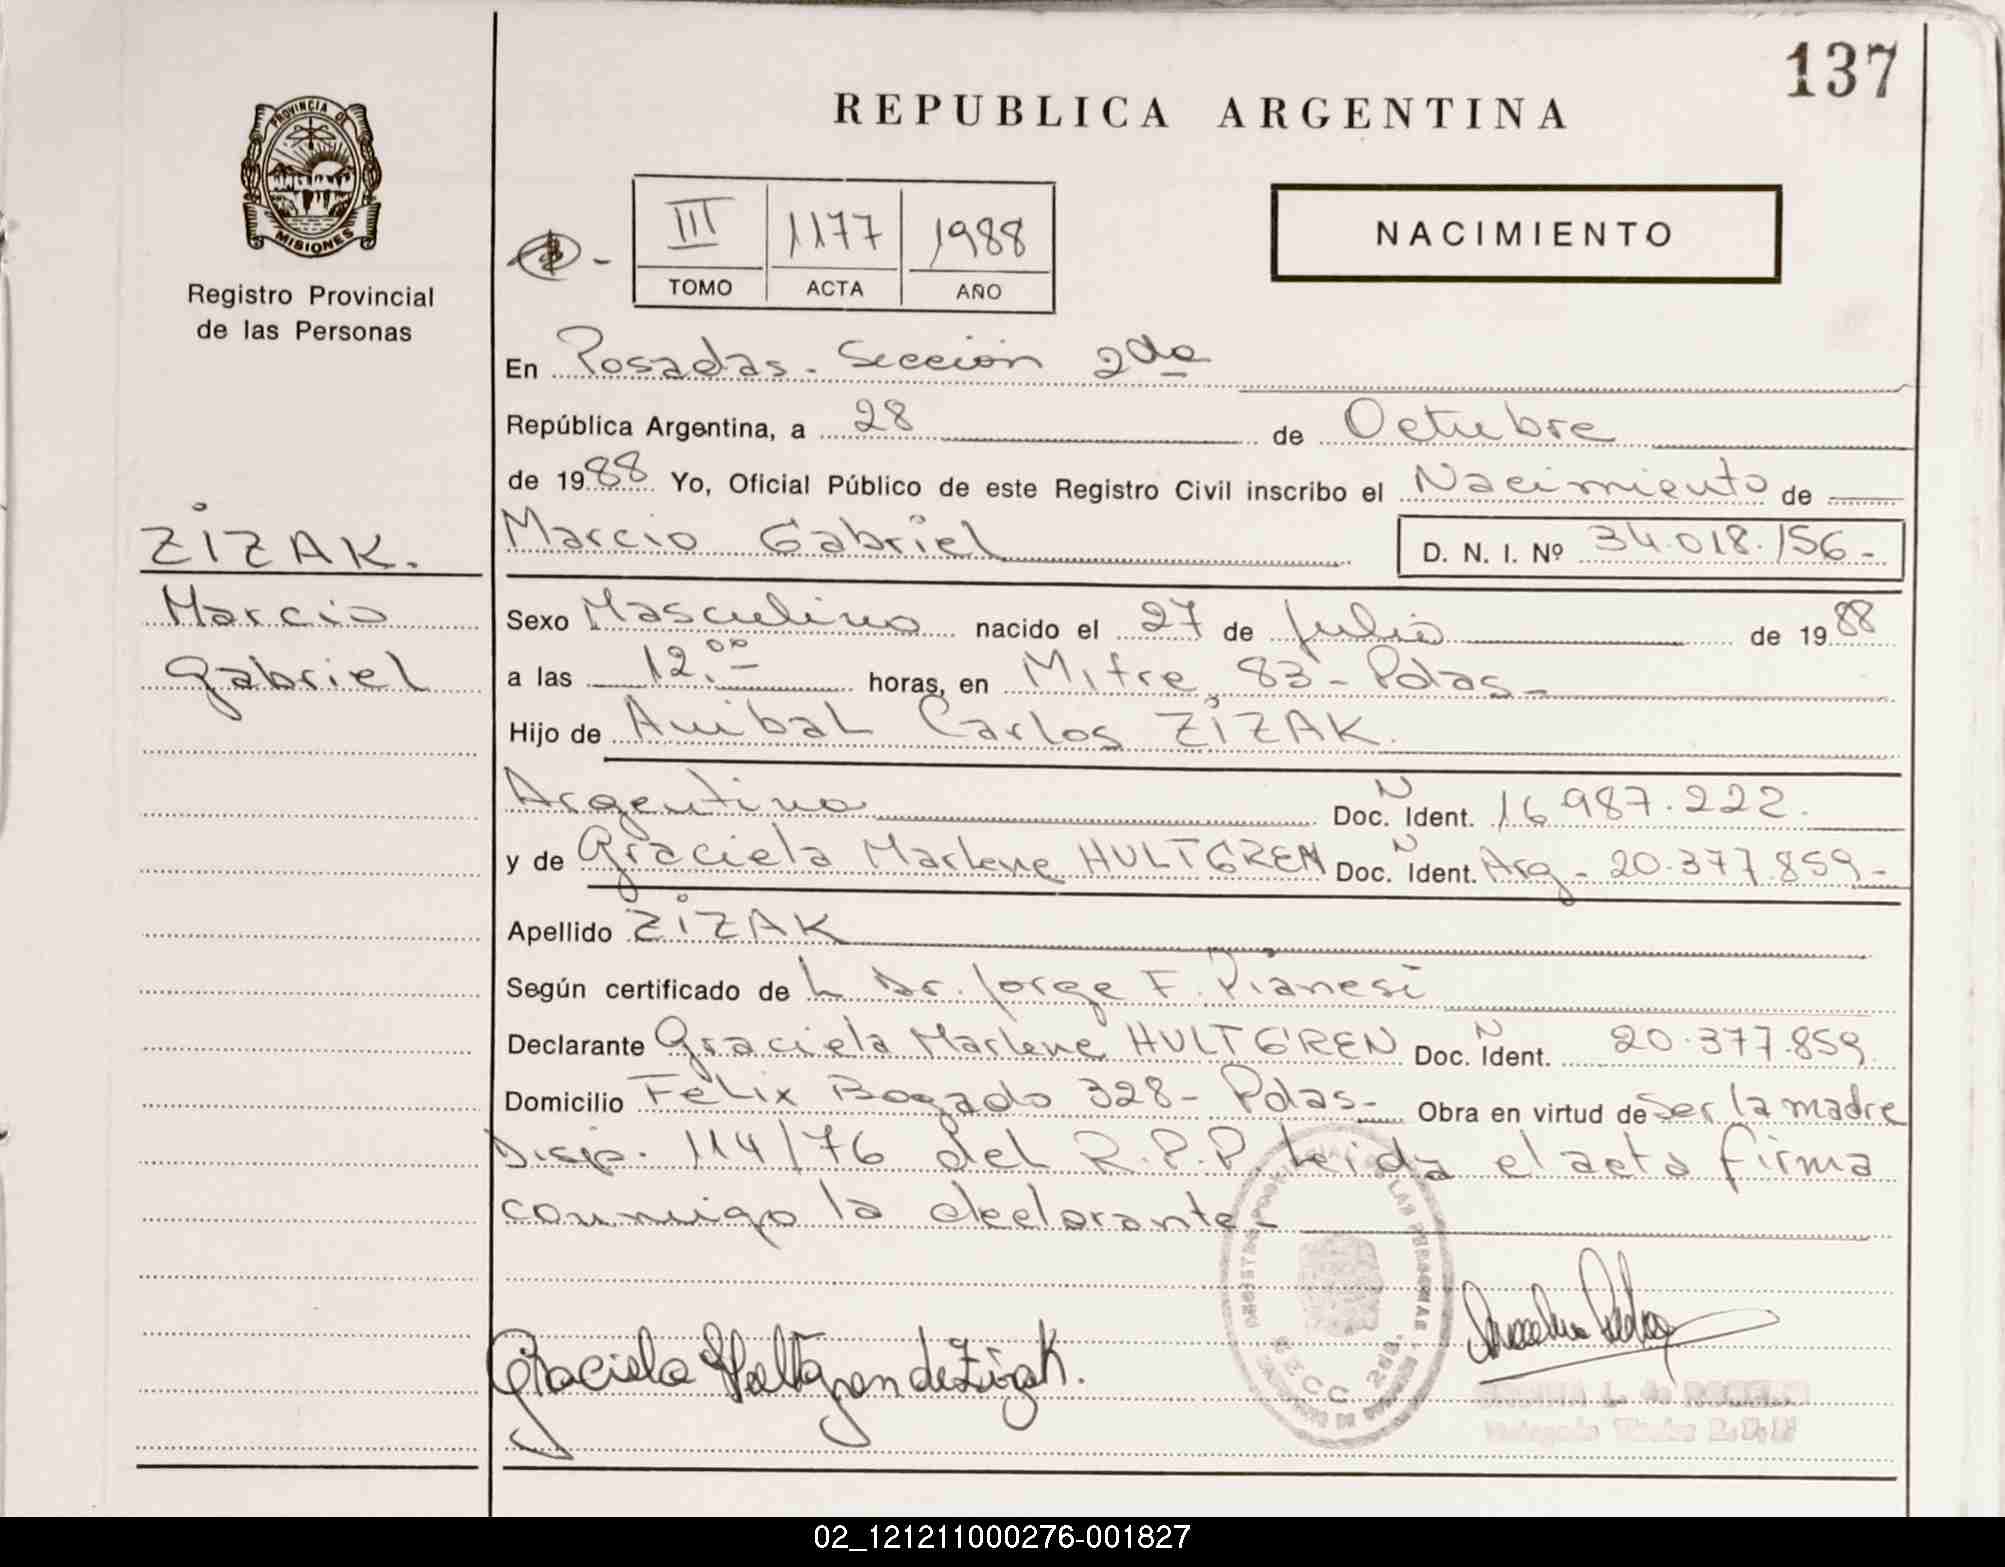 137
REPUBLICA ARGENTINA
PROVINCIA DE
MISIONES
Registro Provincial
de las Personas
III 1177 1988
TOMO ACTA AÑO
NACIMIENTO
En Posadas - Sección 2da
República Argentina, a 28 de Octubre
de 1988 Yo, Oficial Público de este Registro Civil inscribo el Nacimiento de
ZIZAK. Marcio Gabriel D. N. I. Nº 34.018.156-
Marcio Sexo Masculino nacido el 27 de Julio de 1988
Gabriel a las 12.00 horas, en Mitre, 83 - Pdas -
Hijo de Anibal Carlos ZIZAK.
Argentino Doc. N Ident. 16.987.222.
y de Graciela Marlene HULTGREN Doc. N Ident. Arg - 20.377.859 -
Apellido ZIZAK
Según certificado de L Dr. Jorge F. Pianesi
Declarante Graciela Marlene HULTGREN Doc. N Ident. 20.377.859
Domicilio Felix Bogado 328 - Pdas - Obra en virtud de ser la madre
Disp. 114/76 del R.P.P. Leida el acta firma
conmigo la declarante -
Graciela Hultgren de Zizak.
02_121211000276-001827